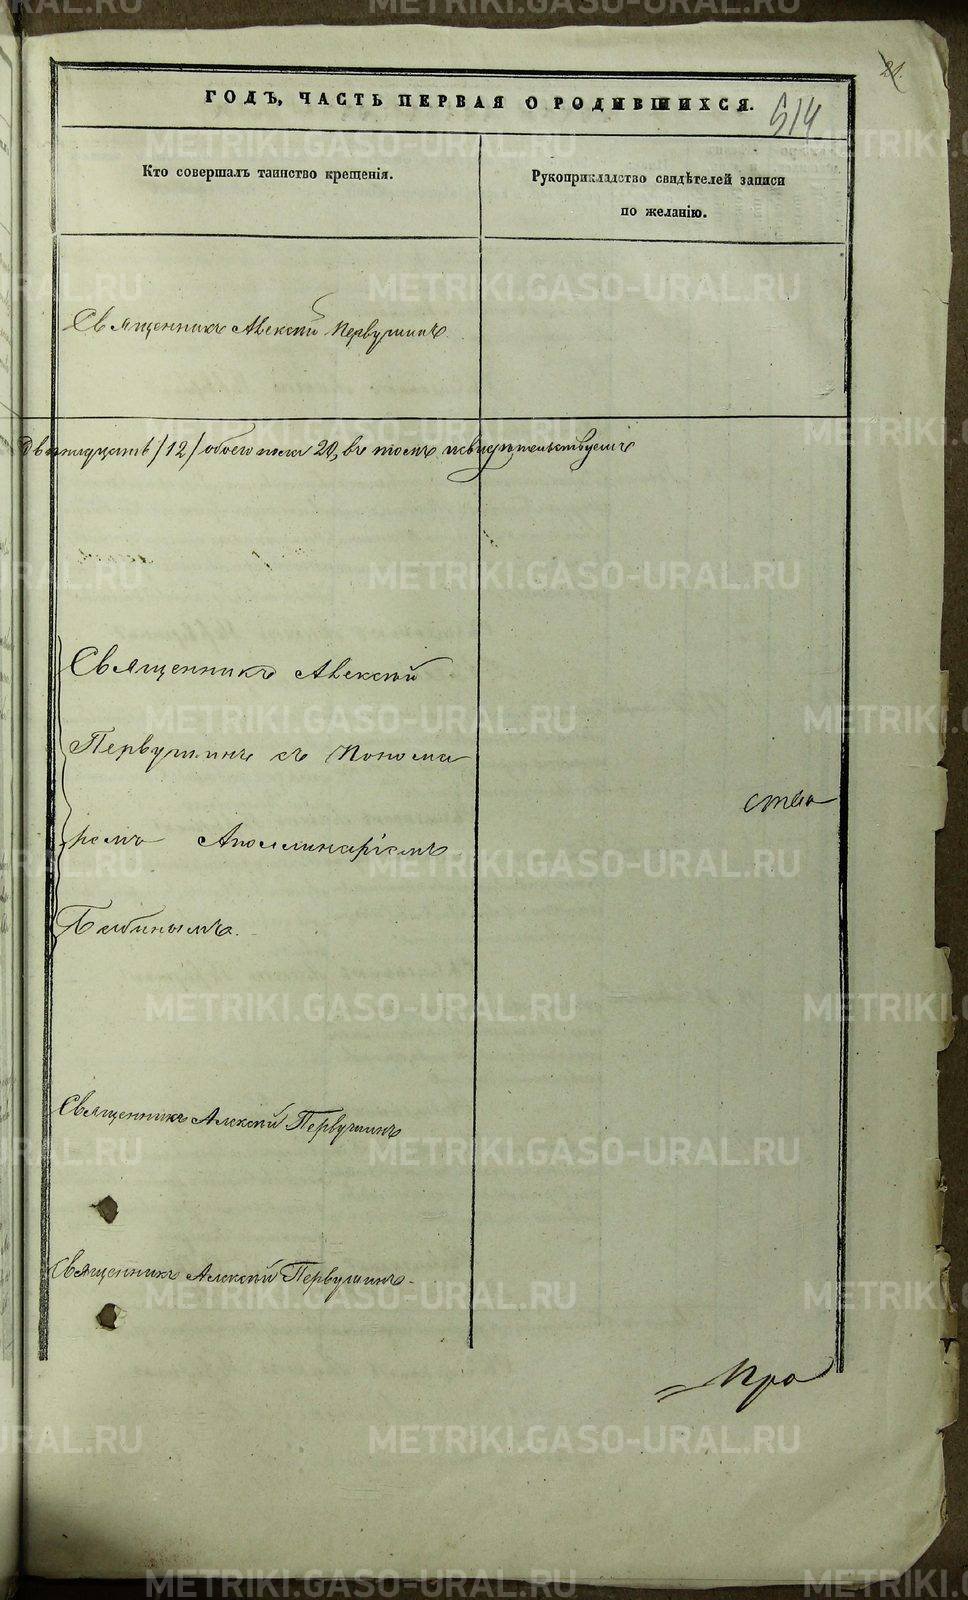 21.
ГОДЪ, ЧАСТЬ ПЕРВАЯ О РОДИВШИХСЯ.
514
Кто совершалъ таинство крещенія.
Рукоприкладство свидѣтелей записи
по желанію.
Священникъ Алексій Первушинъ
двенадцать /12/ обоего пола 20, въ томъ и свидѣтельствуемъ
Священникъ Алексѣй
Первушинъ съ Понома
ремъ Аполлинаріемъ
ства
Священникъ Алексій Первушинъ
Священникъ Алексѣй Первушинъ.
Про
METRIKI.GASO-URAL.RU